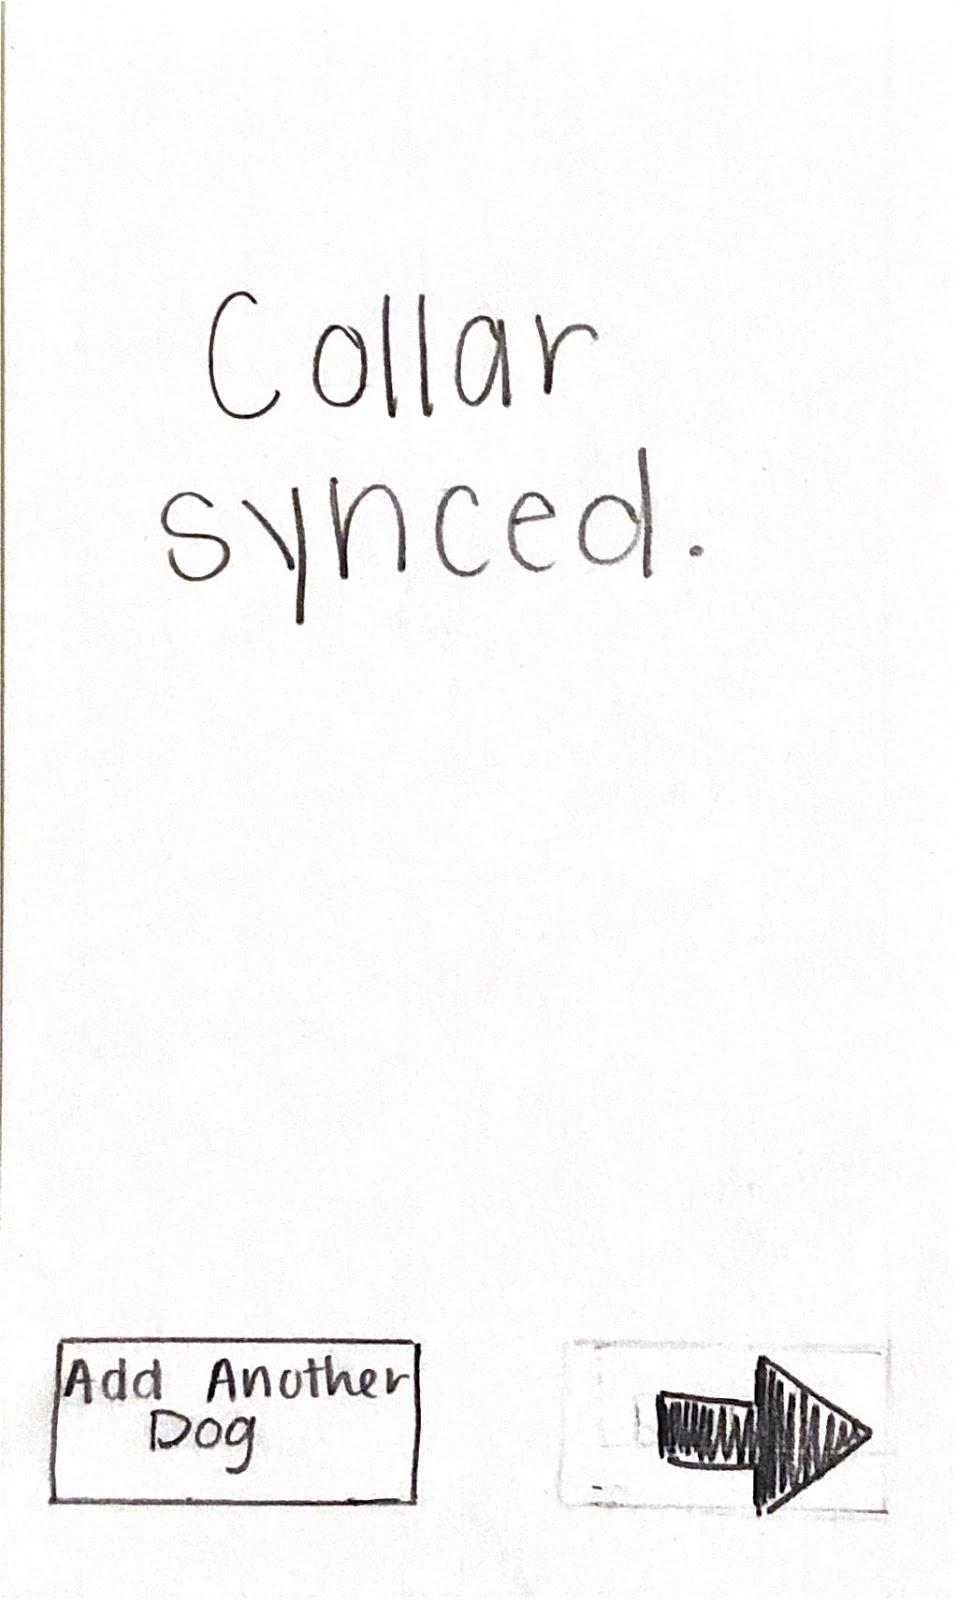 Collar
synced.
Add Another
Dog